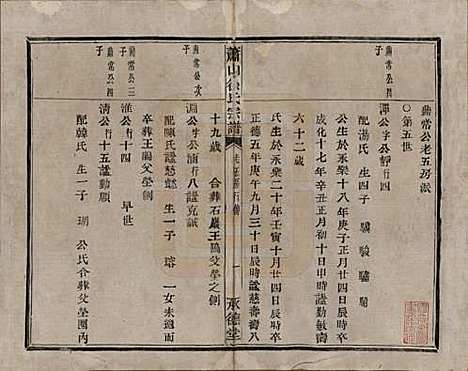 鼎常公老五房派
○第五世
鼎常公四子
渾公字公靜行四
配湯氏 生四子 驥 駿 驌 驦
公生於永樂十八年庚子正月廿四日辰時卒
成化十七年辛丑正月初十日申時諡勤敏壽
六十二歲
氏生於永樂二十年壬寅十月廿四日辰時卒
正德五年庚午九月三十日辰時諡慈壽壽八
蕭山徐氏宗譜
承德堂
十九歲 合葬石巖王隝父塋之側
鼎常公次子
配陳氏諡慈懿 生一子 瑢 一女未適而
卒葬王隝父塋側
鼎常公三子
淮公行十四 早世
鼎常公四子
清公行十五諡勤順
配韓氏 生一子 瑚 公氏合葬父塋圈內